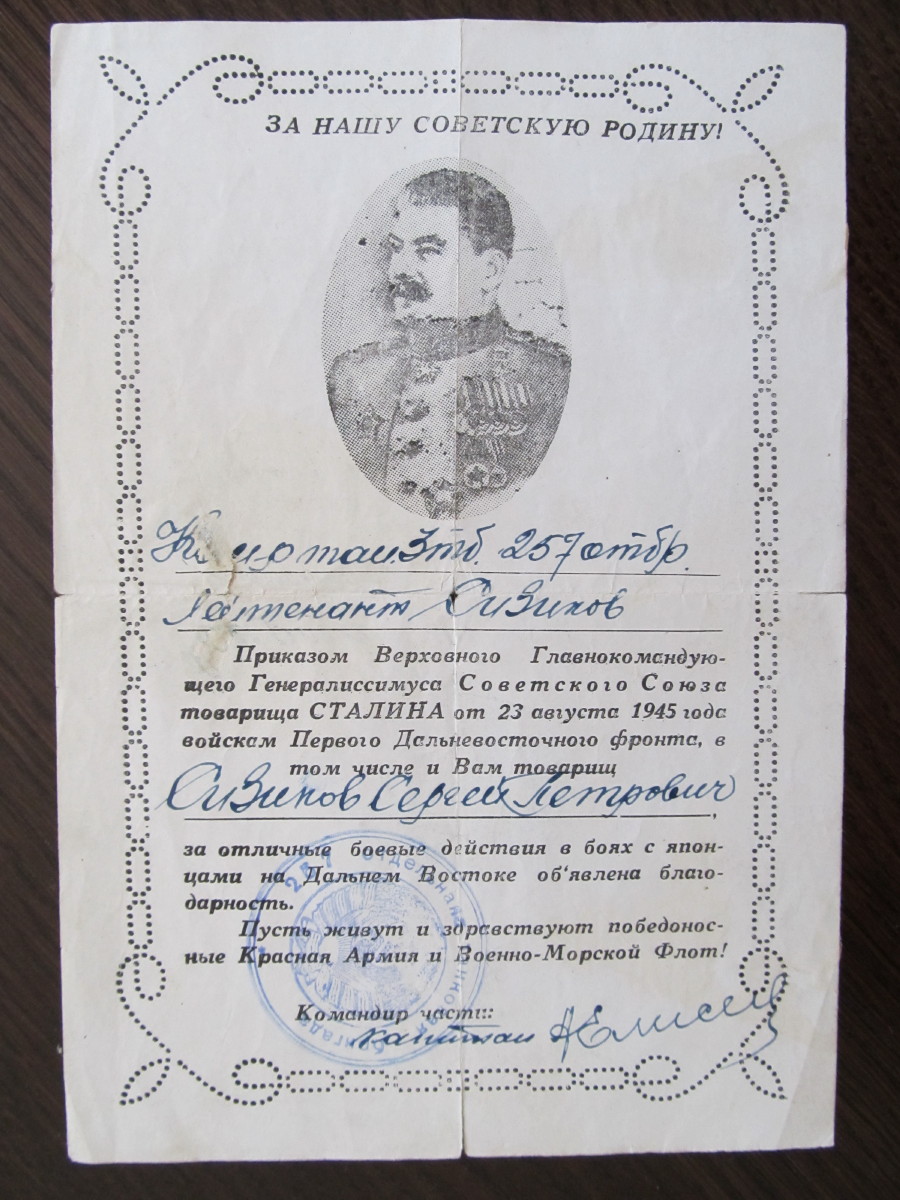 ЗА НАШУ СОВЕТСКУЮ РОДИНУ!
3 тб. 257 отбр.
Лейтенант Сизиков
Приказом Верховного Главнокомандую-
щего Генералиссимуса Советского Союза
товарища СТАЛИНА от 23 августа 1945 года
войскам Первого Дальневосточного фронта, в
том числе и Вам товарищ
Сизиков Сергей Петрович,
за отличные боевые действия в боях с япон-
цами на Дальнем Востоке об'явлена благо-
дарность.
Пусть живут и здравствуют победонос-
ные Красная Армия и Военно-Морской Флот!
Командир части:
капитан
257 отдельная танковая бригада